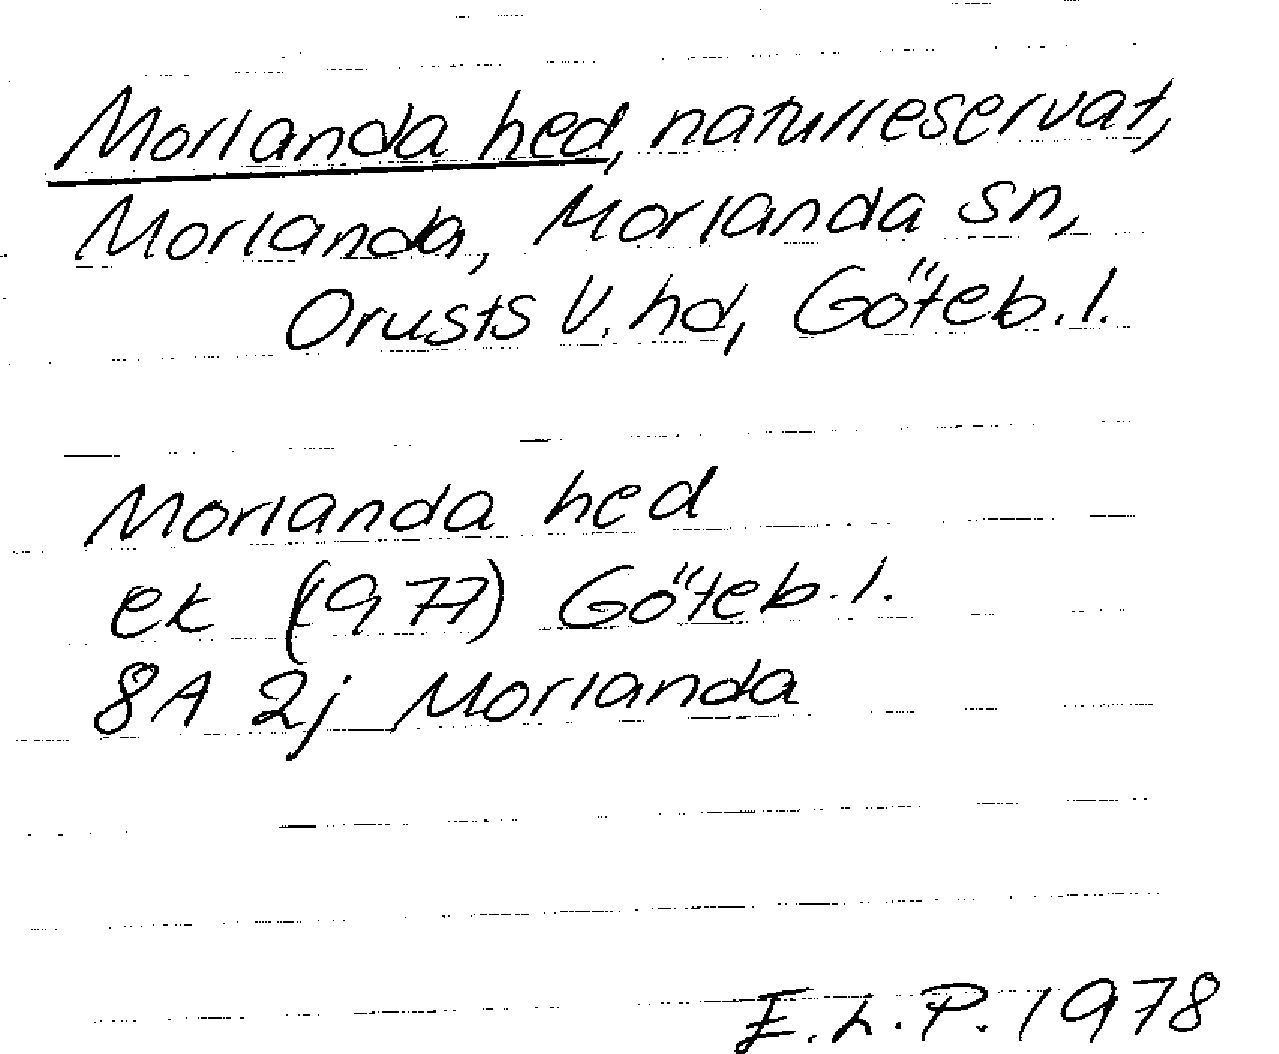 Morlanda hed, naturreservat,
Morlanda, Morlanda sn,
Orusts V. hd, Göteb. l.
Morlanda hed
ek (1977) Göteb. l.
8A 2j Morlanda
E.L.P. 1978